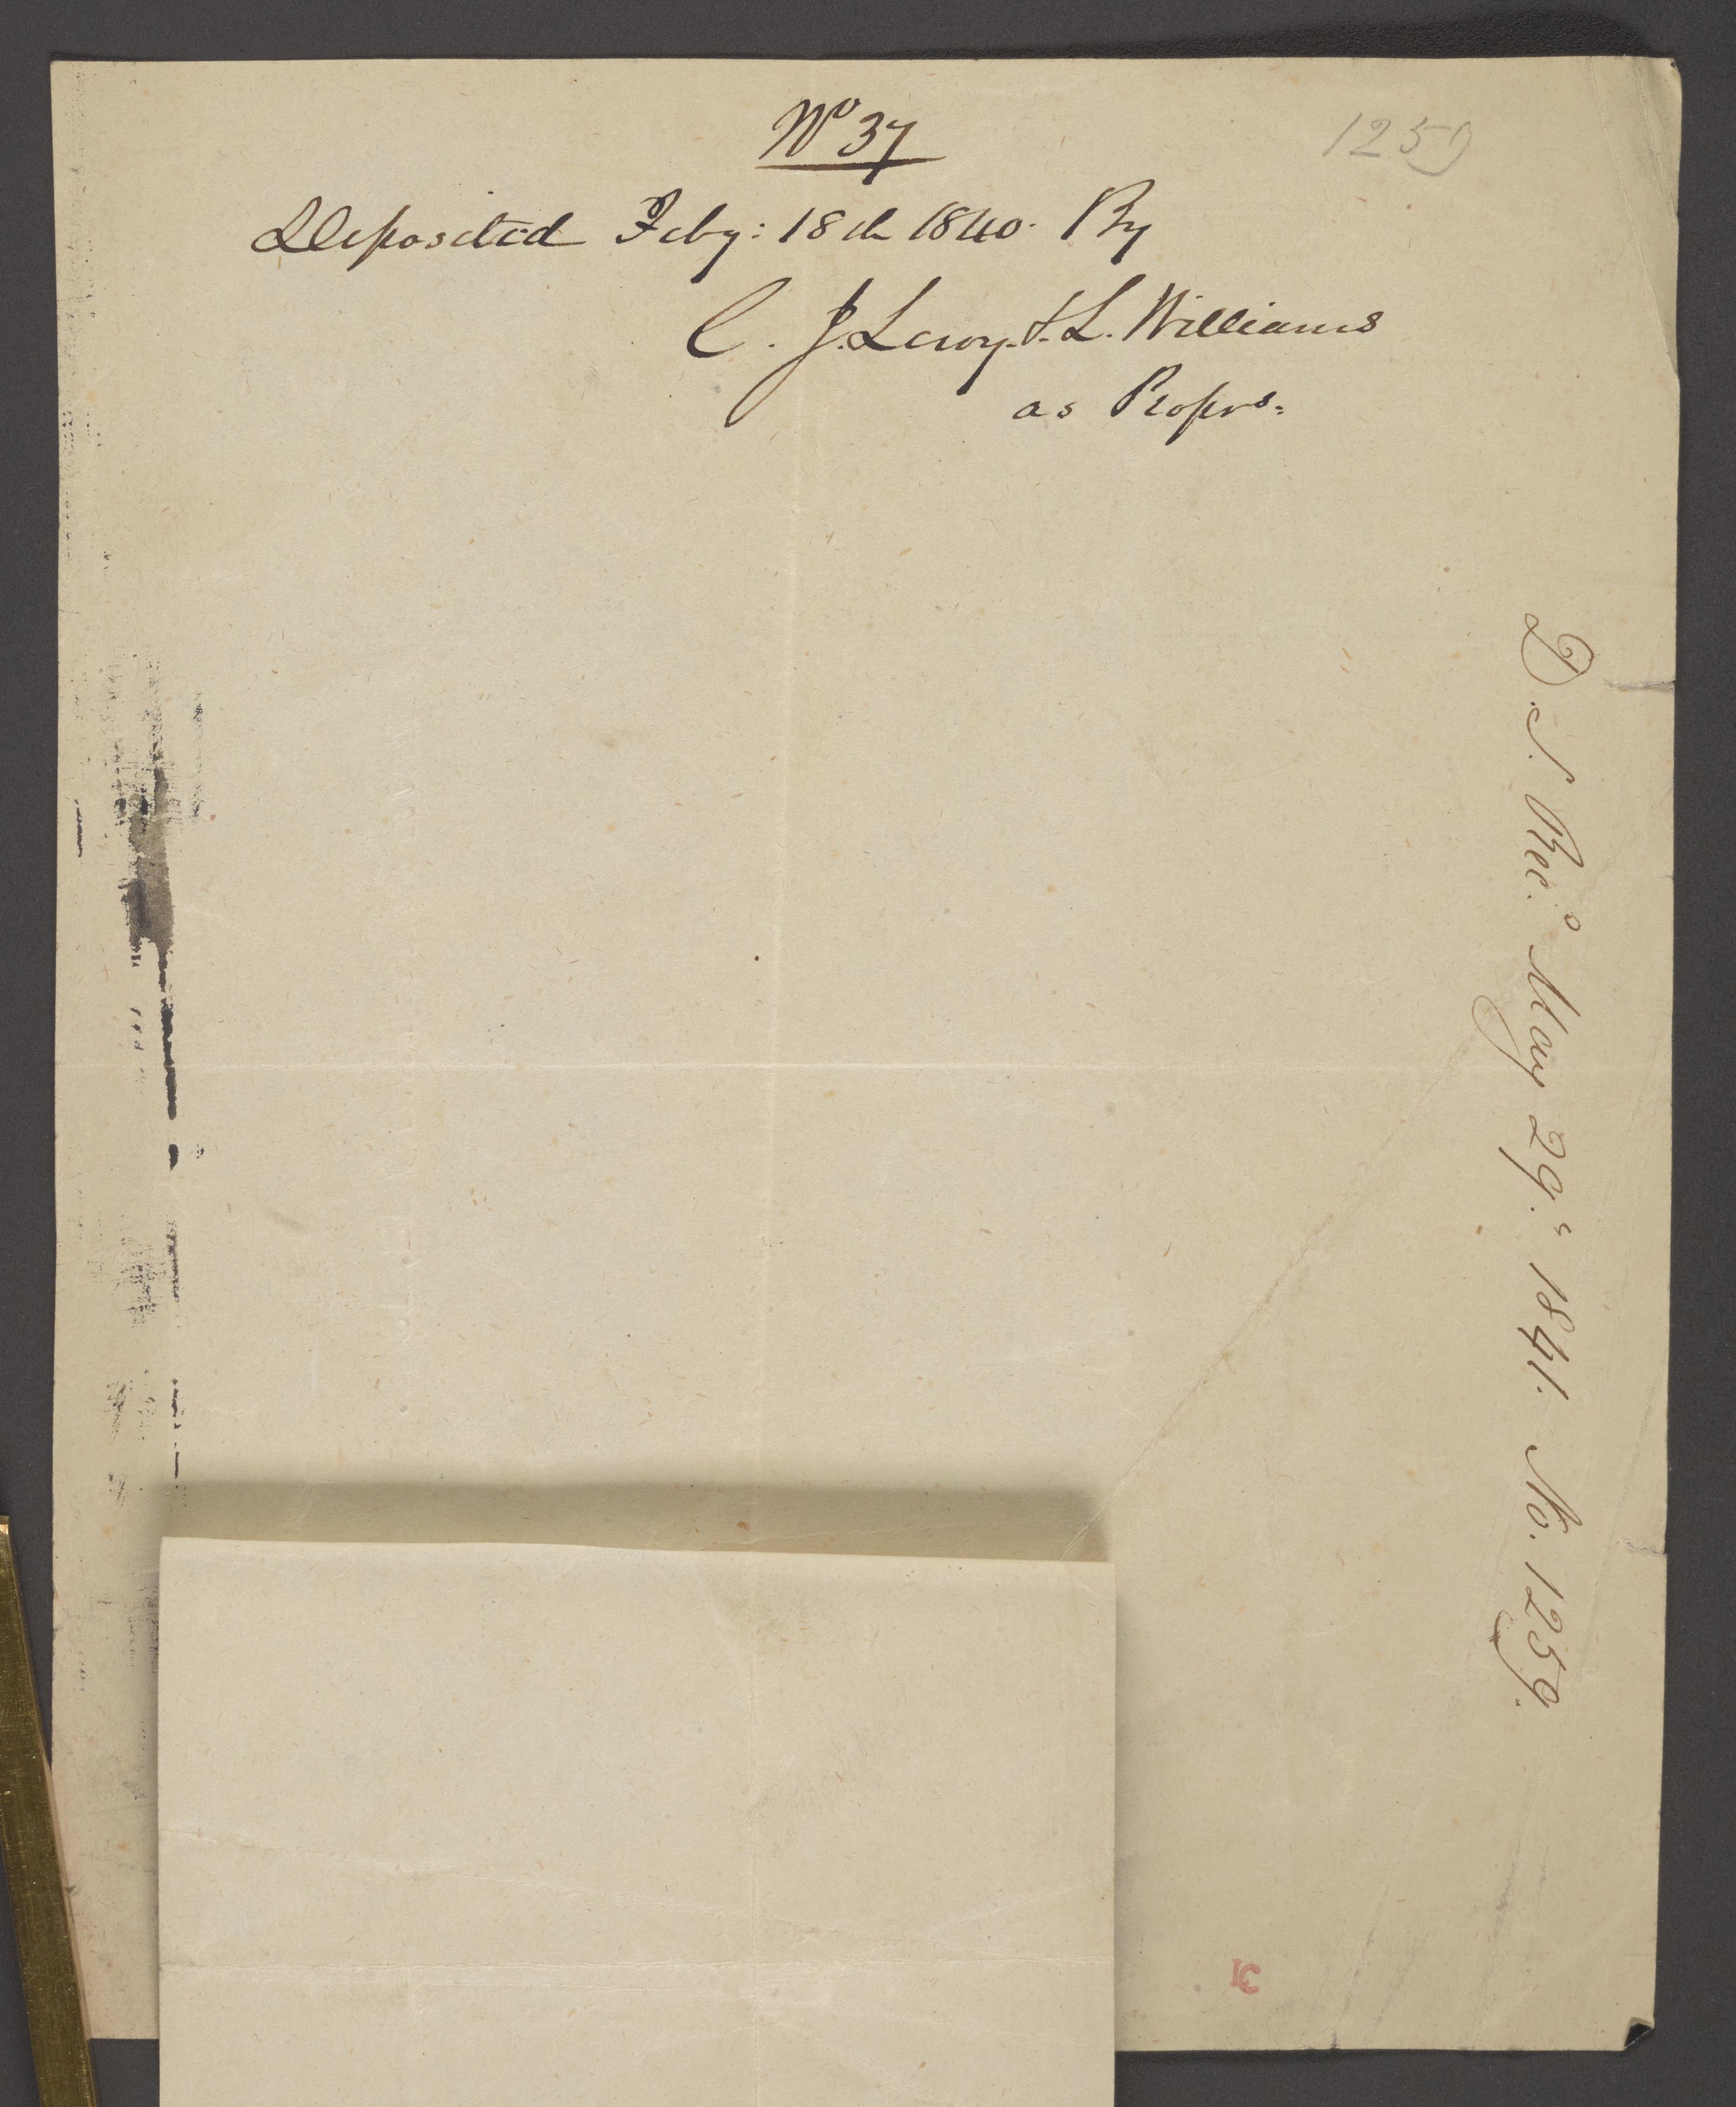 No 37
1259
Deposited Feby: 18th 1840. By
C. J. Leroy. & L. Williams
as Proprs.
D. S. Rec.d May 29." 1841. No. 1259.
31